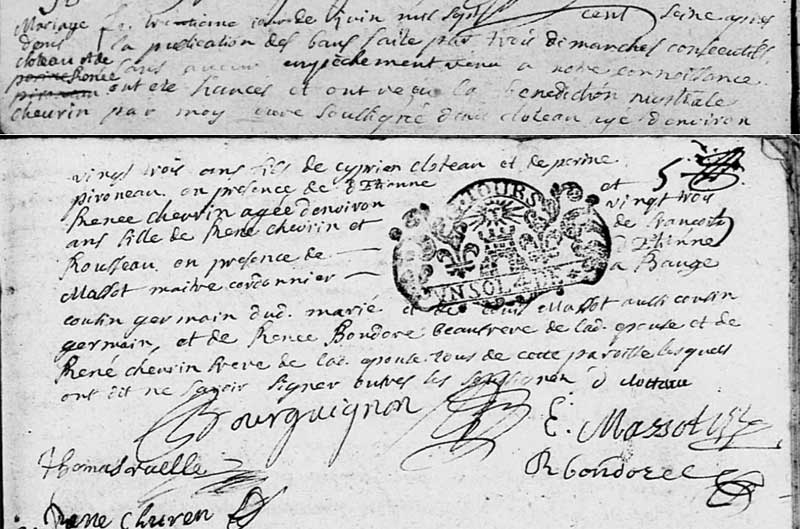 Mariage Le trentieme jour de juin mil sept cent seise apres
denis la publication des bans faite par trois dimanches consecutifs
cloteau et de
perine Renee sans aucun empechement venu a notre connoissance
pironeau ont ete fiances et ont reçu la benediction nuptiale
chevrin par moy curé soussigné denis cloteau age d'environ
vingt trois ans fils de cyprien cloteau et de perine
5
pironeau en presence de d'Etienne et
Renee chevrin agée d'environ vingt trois
ans fille de René chevrin et de francoise
Rousseau en presence de d'Etienne
Massot maitre cordonnier a Baugé
TOURS
VN SOL 4 DEN
cousin germain dud. marié et de Louis Massot aussi cousin
germain, et de Renee Bondoré beaufrere de lad. epouse et de
René chevrin frere de lad. epouse tous de cette paroisse lesquels
ont dit ne savoir signer outres les soussignés d cloteau
Bourguignon
E. Massot
Thomas ruelle
R bondoree
Rene Churen